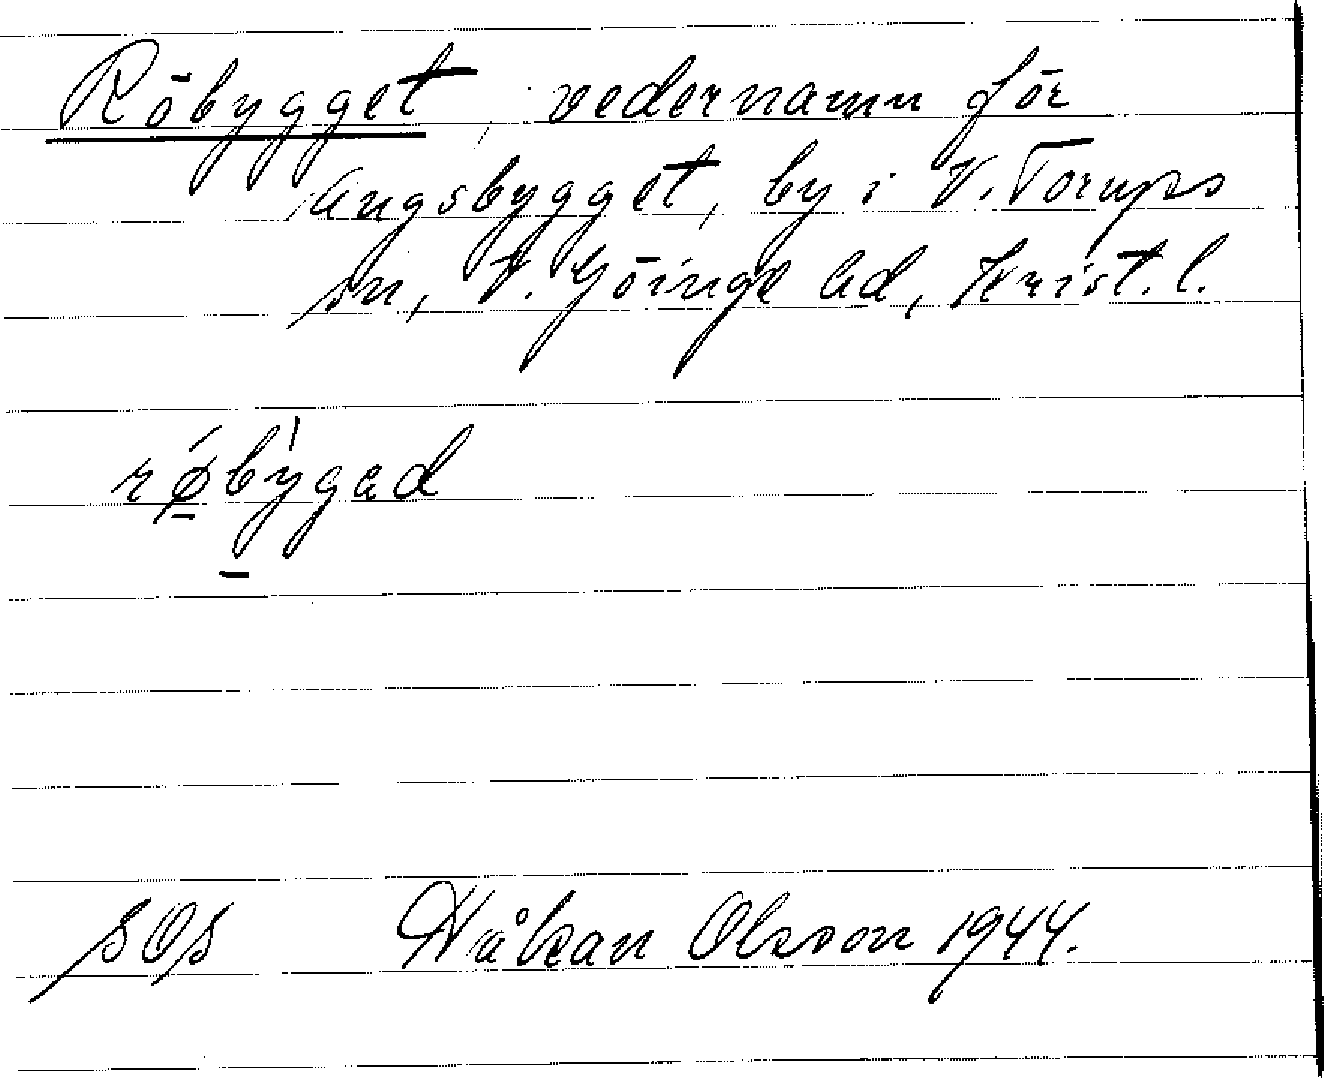 Röbygget, vedernamn för
Ängsbygget, by i V. Torups
sn, V. Göinge hd, Krist. l.
rǿ̱bỳ̱gad
SOS Håkan Olsson 1944.